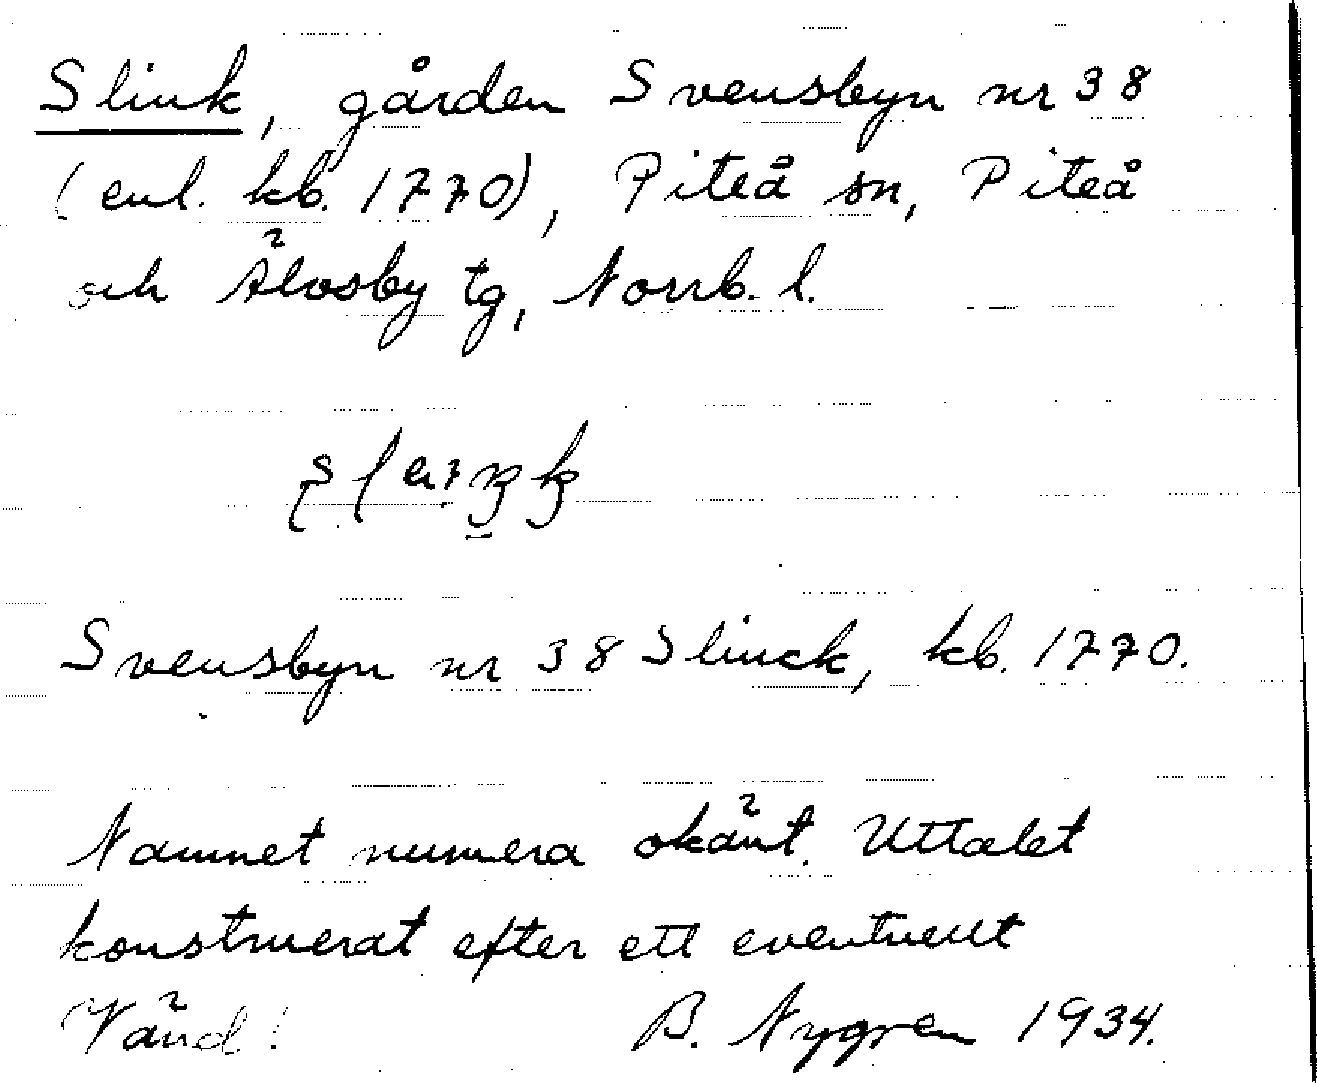 Slink, gården Svensbyn nr 38
(enl. kb. 1770), Piteå sn, Piteå
och Älvsby tg, Norrb. l.
Svensbyn nr 38 Slinck, kb. 1770.
Namnet numera okänt. Uttalet
konstruerat efter ett eventuellt
Vänd! B. Nygren 1934.